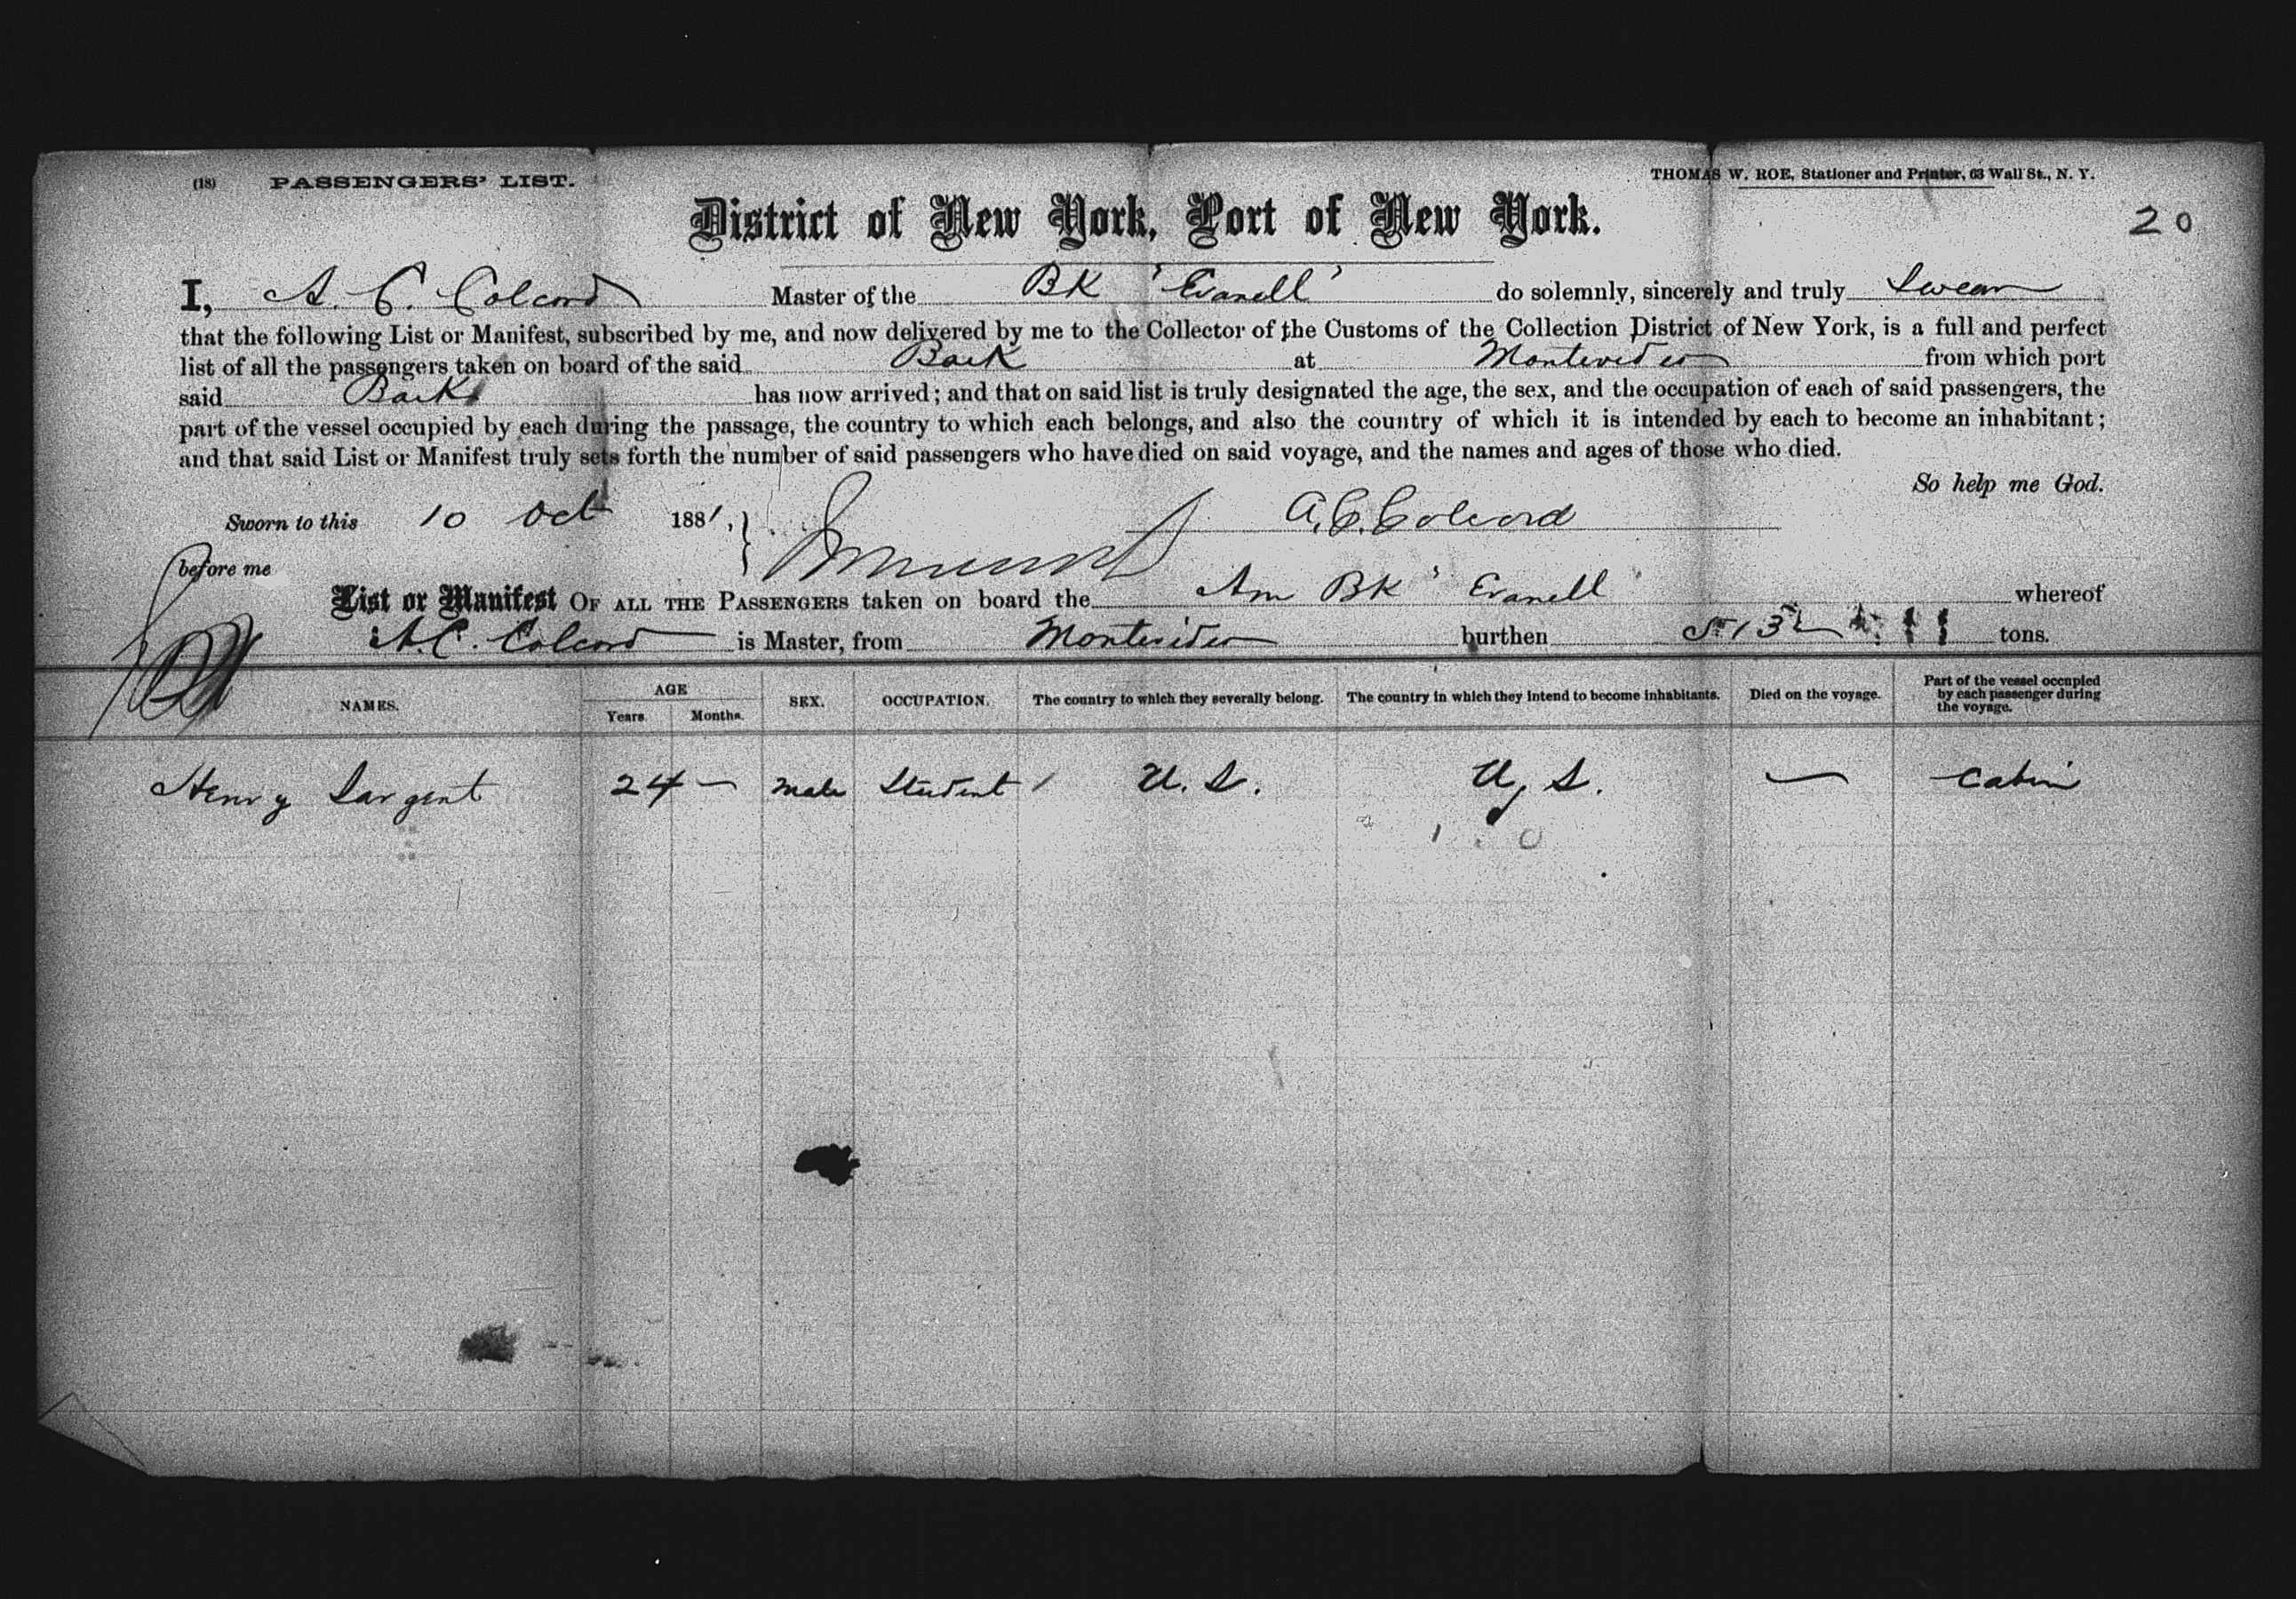 (18) PASSENGERS' LIST. THOMAS W. ROE, Stationer and Printer, 63 Wall St., N. Y.
District of New York, Port of New York. 20
I, A. C. Colcord Master of the BK "Evanell" do solemnly, sincerely and truly Swear
that the following List or Manifest, subscribed by me, and now delivered by me to the Collector of the Customs of the Collection District of New York, is a full and perfect
list of all the passengers taken on board of the said Bark at Montevideo from which port
said Bark has now arrived; and that on said list is truly designated the age, the sex, and the occupation of each of said passengers, the
part of the vessel occupied by each during the passage, the country to which each belongs, and also the country of which it is intended by each to become an inhabitant;
and that said List or Manifest truly sets forth the number of said passengers who have died on said voyage, and the names and ages of those who died.
So help me God.
Sworn to this 10 Oct 1881, A. C. Colcord
before me
List or Manifest OF ALL THE PASSENGERS taken on board the Am BK "Evanell" whereof
A. C. Colcord is Master, from Montevideo burthen tons.
NAMES. AGE Years. Months. SEX. OCCUPATION. The country to which they severally belong. The country in which they intend to become inhabitants. Died on the voyage. Part of the vessel occupied by each passenger during the voyage.
Henry Sargent 24 — male Student U. S. U. S. — Cabin